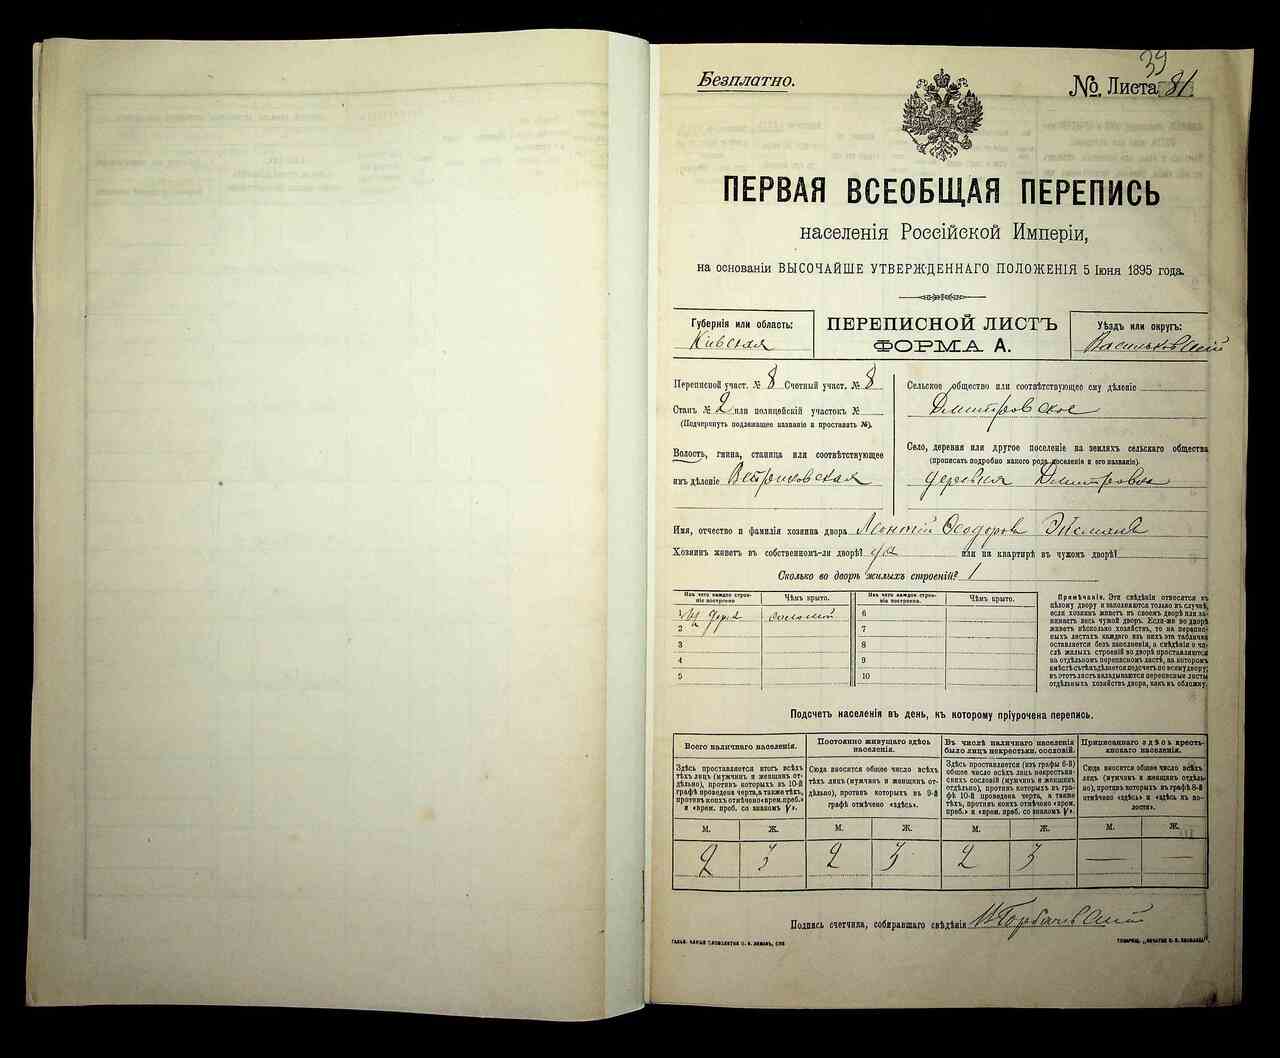 39
Безплатно.
№. Листа 81.
ПЕРВАЯ ВСЕОБЩАЯ ПЕРЕПИСЬ
населенія Россійской Имперіи,
на основаніи ВЫСОЧАЙШЕ УТВЕРЖДЕННАГО ПОЛОЖЕНІЯ 5 Іюня 1895 года.
Губернія или область:
Кіевская
ПЕРЕПИСНОЙ ЛИСТЪ
ФОРМА А.
Уѣздъ или округъ:
Васильковскій
Переписной участ. № 8 Счетный участ. № 8
Станъ № 2 или полицейскій участокъ №
(Подчеркнуть подлежащее названіе и проставить №).
Волость, гмина, станица или соотвѣтствующее
имъ дѣленіе
Сельское общество или соотвѣтствующее ему дѣленіе
Дмитровское
Село, деревня или другое поселеніе на земляхъ сельскаго общества
(прописать подробно какого рода поселеніе и его названіе).
деревня Дмитровка
Имя, отчество и фамилія хозяина двора Леонтій Ѳеодоровъ
Хозяинъ живетъ въ собственномъ-ли дворѣ? да или на квартирѣ въ чужомъ дворѣ?
Сколько во дворѣ жилыхъ строеній? 1
На чего каждое строеніе построено
Чѣмъ крыто.
На чего каждое строеніе построено.
Чѣмъ крыто.
1 Изъ дерева соломой
2
3
4
5
6
7
8
9
10
Примѣчаніе. Эти свѣдѣнія относятся къ
цѣлому двору и заполняются только въ случаѣ,
если хозяинъ живетъ въ своемъ дворѣ или занимаетъ
весь чужой дворъ. Если-же во дворѣ
живетъ нѣсколько хозяйствъ, то на переписныхъ
листахъ каждаго изъ нихъ эта табличка
оставляется безъ наполненія, а свѣдѣнія о числѣ
жилыхъ строеній во дворѣ проставляются
на отдѣльномъ переписномъ листѣ, на которомъ
вмѣстѣ съ тѣмъ дѣлается подсчетъ по всему двору;
въ этотъ листъ вкладываются переписные листы
отдѣльныхъ хозяйствъ двора, какъ въ обложку.
Подсчетъ населенія въ день, къ которому пріурочена перепись.
Всего наличнаго населенія.
Здѣсь проставляется итогъ всѣхъ
тѣхъ лицъ (мужчинъ и женщинъ отдѣльно),
противъ которыхъ въ 10-й
графѣ проведена черта, а также тѣхъ,
противъ коихъ отмѣчено «врем. преб.»
и «врем. преб. со знакомъ V».
Постоянно живущаго здѣсь
населенія.
Сюда вносится общее число всѣхъ
тѣхъ лицъ (мужчинъ и женщинъ отдѣльно),
противъ которыхъ въ 9-й
графѣ отмѣчено «здѣсь».
Въ числѣ наличнаго населенія
было лицъ некрестьян. сословій.
Здѣсь проставляется (изъ графы 6-й)
общее число всѣхъ лицъ некрестьянскихъ
сословій (мужчинъ и женщинъ
отдѣльно), противъ которыхъ въ графѣ
10-й проведена черта, а также
тѣхъ, противъ коихъ отмѣчено «врем.
преб.» и «врем. преб. со знакомъ V».
Приписаннаго здѣсь крестьянскаго
населенія.
Сюда вносится общее число всѣхъ
лицъ (мужчинъ и женщинъ отдѣльно),
противъ которыхъ въ графѣ 8-й
отмѣчено «здѣсь» и «здѣсь къ волости».
М. Ж. М. Ж. М. Ж. М. Ж.
2 3 2 3 2 3 — —
Подпись счетчика, собиравшаго свѣдѣнія